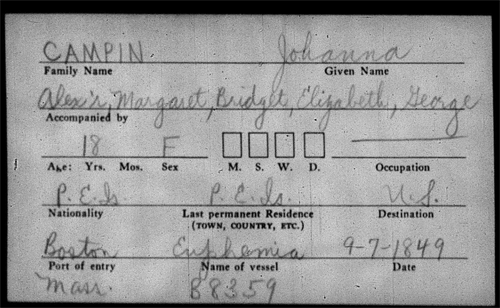 CAMPIN Johanna
Family Name Given Name
Alex'r, Margaret, Bridget, Elizabeth, George
Accompanied by
18 F
Age: Yrs. Mos. Sex M. S. W. D. Occupation
P.E.Is. P.E.Is. U.S.
Nationality Last permanent Residence Destination
(TOWN, COUNTRY, ETC.)
Boston Euphemia 9-7-1849
Port of entry Name of vessel Date
Mass. B8359